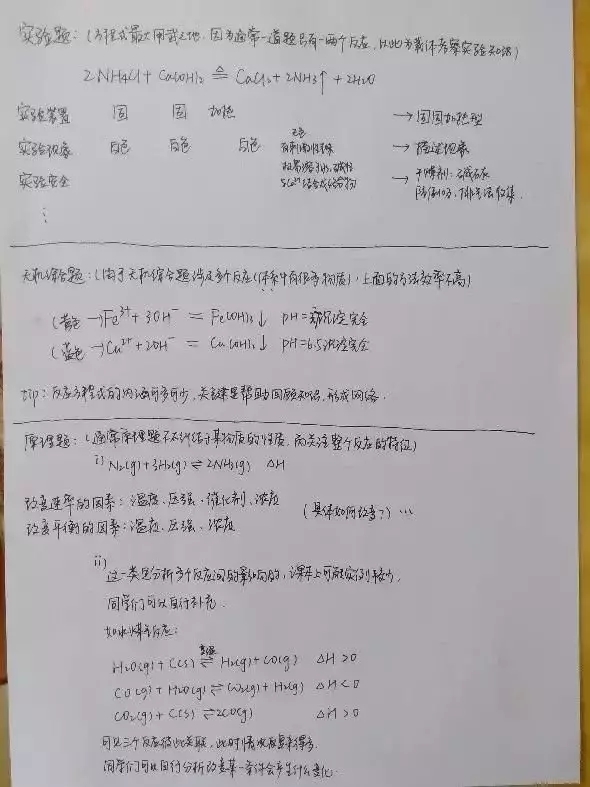 实验题：(方程式最大用武之地，因为通常一道题只有一两个反应，以此为载体考察实验知识)
2NH4Cl + Ca(OH)2 ≜ CaCl2 + 2NH3↑ + 2H2O
实验装置 固 固 加热 → 固固加热型
实验现象 白色 白色 白色 无色 有刺激性气味 → 描述现象
实验安全 极易溶于水、碱性 与Ca2+结合成络合物 → 干燥剂：碱石灰
防倒吸，排空法收集
⋮
无机综合题：(由于无机综合题涉及多个反应(体系中有很多物质)，上面的方法效率不高)
(黄色→)Fe3+ + 3OH- = Fe(OH)3↓ pH= 沉淀完全
(蓝色→)Cu2+ + 2OH- = Cu(OH)2↓ pH=6.5沉淀完全
tip：反应方程式的内涵可多可少，关键是帮助回顾知识，形成网络.
原理题：(通常原理题不纠结于某物质的性质，而关注整个反应的特征)
i) N2(g)+3H2(g) ⇌ 2NH3(g) ΔH
改变速率的因素：温度、压强、催化剂、浓度
改变平衡的因素：温度、压强、浓度 (具体如何改变?) …
ii)
这一类是分析多个反应间的影响的，课本上可能实例较少，
同学们可以自行补充.
如水煤气反应：
H2O(g) + C(s) ⇌高温 H2(g)+CO(g) ΔH>0
CO(g) + H2O(g) ⇌ CO2(g) + H2(g) ΔH<0
CO2(g) + C(s) ⇌ 2CO(g) ΔH>0
可见三个反应彼此关联，此时情况复杂得多.
同学们可以自行分析改变某一条件会产生什么变化.